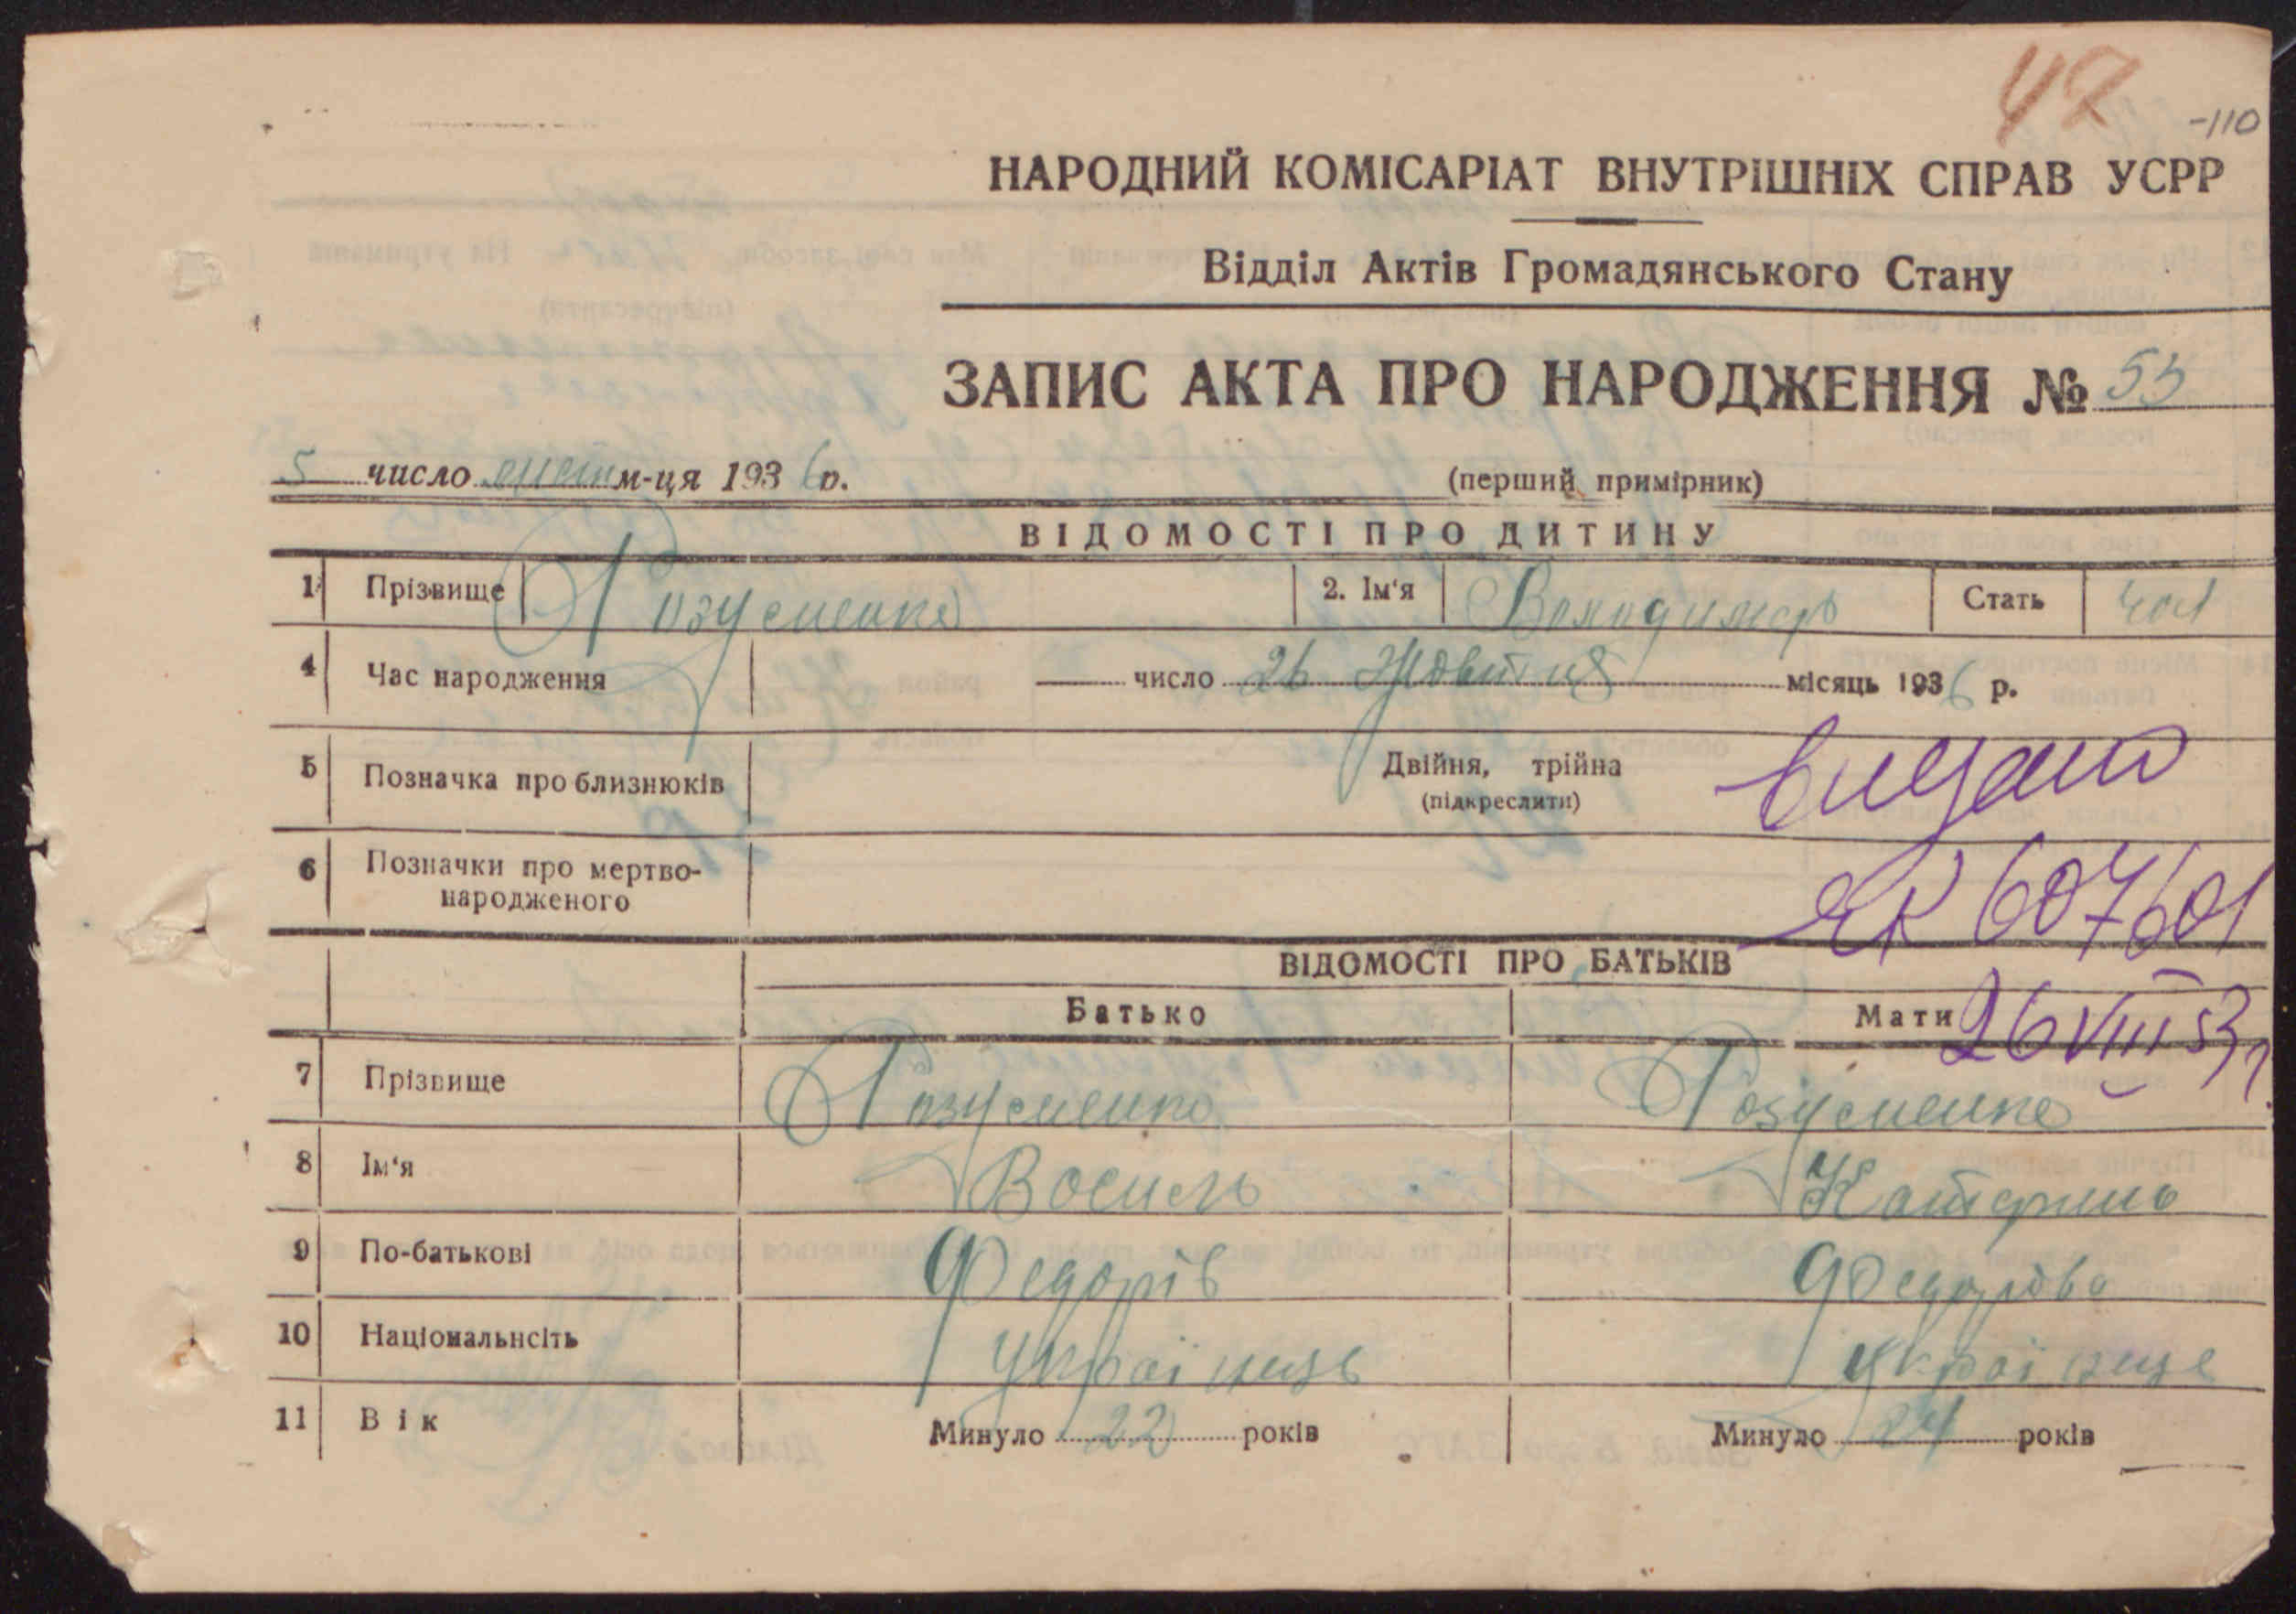 42
-110
НАРОДНИЙ КОМІСАРІАТ ВНУТРІШНІХ СПРАВ УСРР
Відділ Актів Громадянського Стану
ЗАПИС АКТА ПРО НАРОДЖЕННЯ № 53
5 число лист м-ця 1936 р.
(перший примірник)
ВІДОМОСТІ ПРО ДИТИНУ
1 Прізвище Розуменко 2. Ім'я Володимир Стать чол
4 Час народження число 26 Жовтня місяць 1936 р.
5 Позначка про близнюків Двійня, трійна
(підкреслити)
видано
6 Позначки про мертво-
народженого
ЯК 607601
ВІДОМОСТІ ПРО БАТЬКІВ
Батько Мати
26 VIII 53 р.
7 Прізвище Розуменко Розуменко
8 Ім'я Василь Катерина
9 По-батькові Федорів Федорівна
10 Національнсіть Українець Українце
11 Вік Минуло 22 років Минуло 24 років